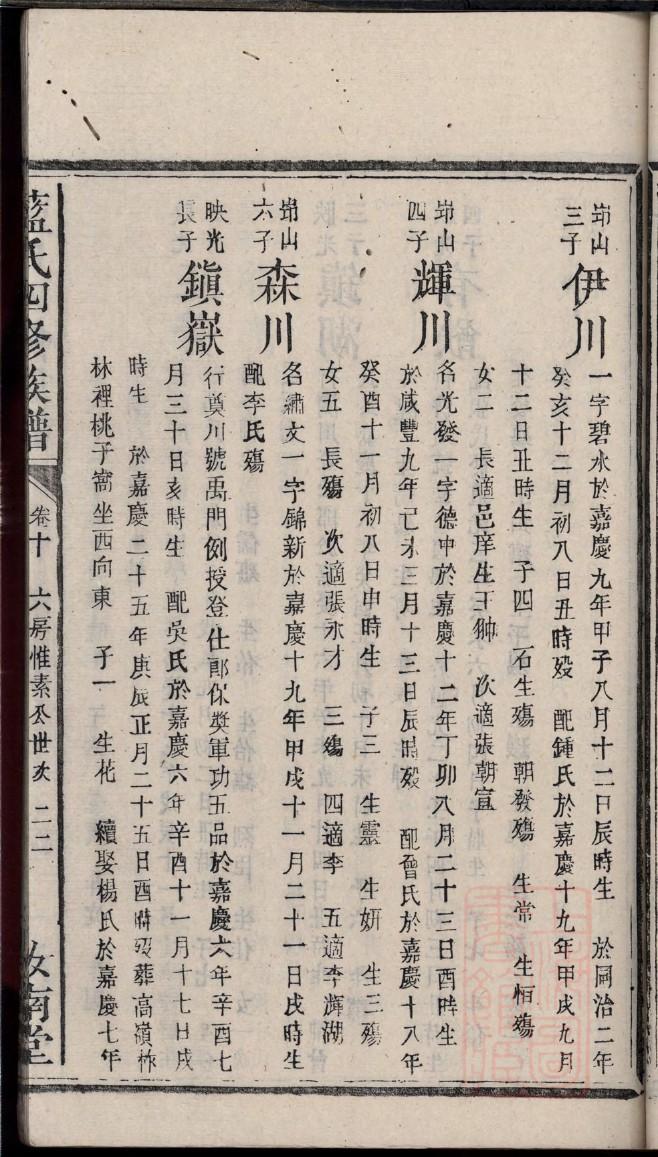 峁山三子
伊川
一字碧水於嘉慶九年甲子八月十二日辰時生 於同治二年
癸亥十二月初八日丑時殁 配鍾氏於嘉慶十九年甲戌九月
十二日丑時生 子四 石生殤 朝發殤 生常 生恒殤
女二 長適邑庠生王翀 次適張朝宣
峁山四子
輝川
名光發一字德中於嘉慶十二年丁卯八月二十三日酉時生
於咸豐九年己未三月十三日辰時殁 配晉氏於嘉慶十八年
癸酉十一月初八日申時生 子三 生靈 生妍 生三殤
女五 長殤 次適張永才 三殤 四適李 五適李輝湖
峁山六子
森川
名繡文一字錦新於嘉慶十九年甲戌十一月二十一日戌時生
配李氏殤
映光長子
鎮嶽
行奠川號禹門例授登仕郎保獎軍功五品於嘉慶六年辛酉七
月三十日亥時生 配吳氏於嘉慶六年辛酉十一月十七日戌
時生 於嘉慶二十五年庚辰正月二十五日酉時殁葬高嶺柞
林裡桃子窩坐西向東 子一 生花 續娶楊氏於嘉慶七年
藍氏四修族譜
卷十 六房惟素公世次 二二
汝南堂